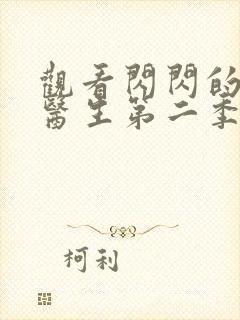 觀看閃閃的
醫生第二季
柯利